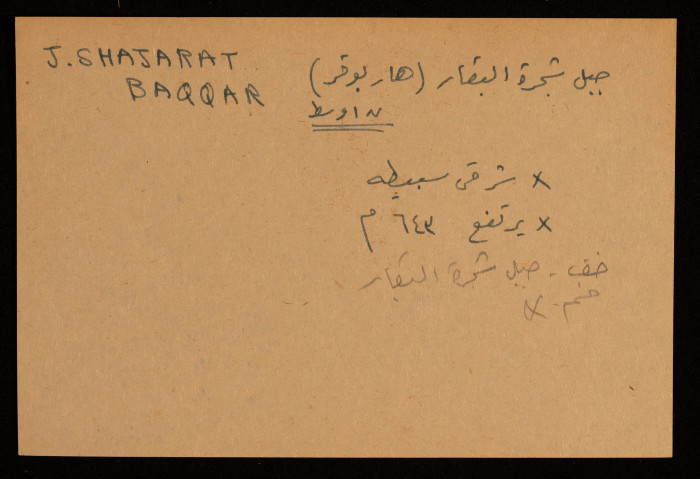 J. SHAJARAT
BAQQAR
جبل شجرة البقار (هار بوقر)
اوسط
x شرقي سبيطه
x يرتفع ٦٤٣ م
خف - جبل شجرة البقار
x